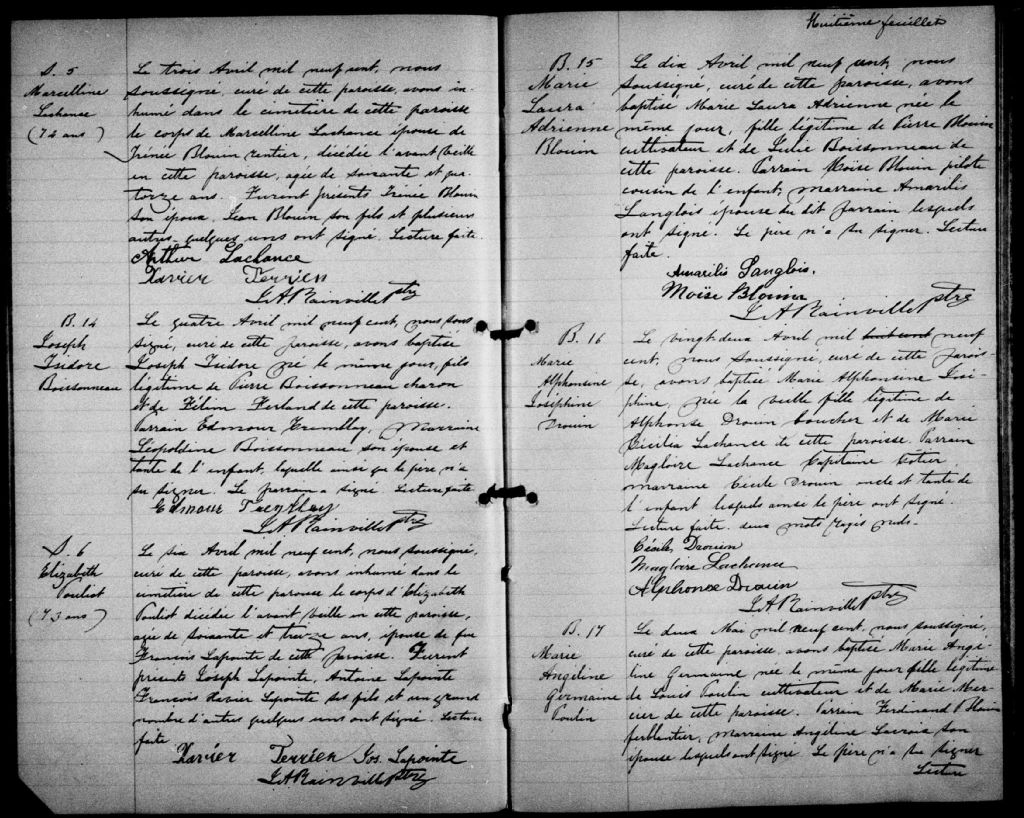 S. 5
Marcelline
Lachance
(74 ans)
Le trois Avril mil neuf cent, nous
soussigné, curé de cette paroisse, avons in-
humé dans le cimetière de cette paroisse
le corps de Marcelline Lachance épouse de
Irénée Blouin rentier, décédée l'avant veille
en cette paroisse, agée de soixante et qua-
torze ans. Furent présents Irénée Blouin
son époux, Jean Blouin son fils et plusieurs
autres quelques uns ont signé. Lecture faite.
Arthur Lachance
Xavier Terrien
L A Rainville ptre
B. 14
Joseph
Isidore
Boissonneau
Le quatre Avril mil neuf cent, nous sous
signé, curé de cette paroisse, avons baptisé
Joseph Isidore né le même jour, fils
légitime de Pierre Boissonneau charon
et de Ferland de cette paroisse.
Parrain Edmour Tremblay, Marraine
Léopoldine Boissonneau son épouse et
tante de l'enfant, laquelle ainsi que le père n'a
su signer. Le parrain a signé Lecture faite
Edmour Tremblay
L A Rainville ptre
S. 6
Elizabeth
Pouliot
(73 ans)
Le six Avril mil neuf cent, nous soussigné,
curé de cette paroisse, avons inhumé dans le
cimetière de cette paroisse le corps d'Elizabeth
Pouliot décédée l'avant veille en cette paroisse,
agée de soixante et treize ans, épouse de feu
Francois Lapointe de cette paroisse. Furent
présents Joseph Lapointe, Antoine Lapointe
Francois Xavier Lapointe ses fils et un grand
nombre d'autres quelques uns ont signé. Lecture
faite
Xavier Terrien Jos. Lapointe
L A Rainville ptre
Huitième feuillet
B. 15
Marie
Laura
Adrienne
Blouin
Le dix Avril mil neuf cent, nous
soussigné, curé de cette paroisse, avons
baptisé Marie Laura Adrienne née le
même jour, fille légitime de Pierre Blouin
cultivateur et de Boissonneau de
cette paroisse. Parrain Moïse Blouin pilote
cousin de l'enfant, marraine Amarilis
Langlois épouse du dit parrain lesquels
ont signé. Le père n'a su signer. Lecture
faite.
Amarilis Langlois.
Moïse Blouin
L A Rainville ptre
B. 16
Marie
Alphonsine
Joséphine
Drouin
Le vingt deux Avril mil huit cent neuf
cent, nous soussigné, curé de cette parois-
se, avons baptisé Marie Alphonsine José-
phine, née la veille fille légitime de
Alphonse Drouin boucher et de Marie
Cécilia Lachance de cette paroisse. Parrain
Magloire Lachance Capitaine Cotier
marraine Cécile Drouin oncle et tante de
l'enfant lesquels ainsi le père ont signé.
Lecture faite. deux mots rayés nuls.
Cécile Drouin
Magloire Lachance
Alphonse Drouin
L A Rainville ptre
B. 17
Marie
Angéline
Germaine
Poulin
Le deux Mai mil neuf cent, nous soussigné,
curé de cette paroisse, avons baptisé Marie Angé-
line Germaine née le même jour fille légitime
de Louis Poulin cultivateur et de Marie Mer-
cier de cette paroisse. Parrain Ferdinand Blouin
ferblantier, marraine Angéline son
épouse lesquels ont signé. Le père n'a su signer
Lecture